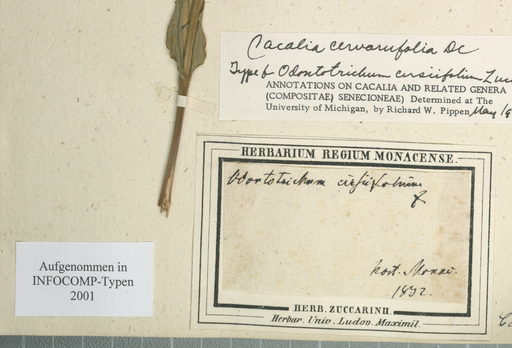 Cacalia cervariifolia DC
Type of Odontotrichum cirsiifolium Zucc
ANNOTATIONS ON CACALIA AND RELATED GENERA
(COMPOSITAE; SENECIONEAE) Determined at The
University of Michigan, by Richard W. Pippen May 19
HERBARIUM REGIUM MONACENSE.
Odontotrichum cirsiifolium
hort. Monac.
1832.
HERB. ZUCCARINII.
Herbar. Univ. Ludov. Maximil.
Aufgenommen in
INFOCOMP-Typen
2001